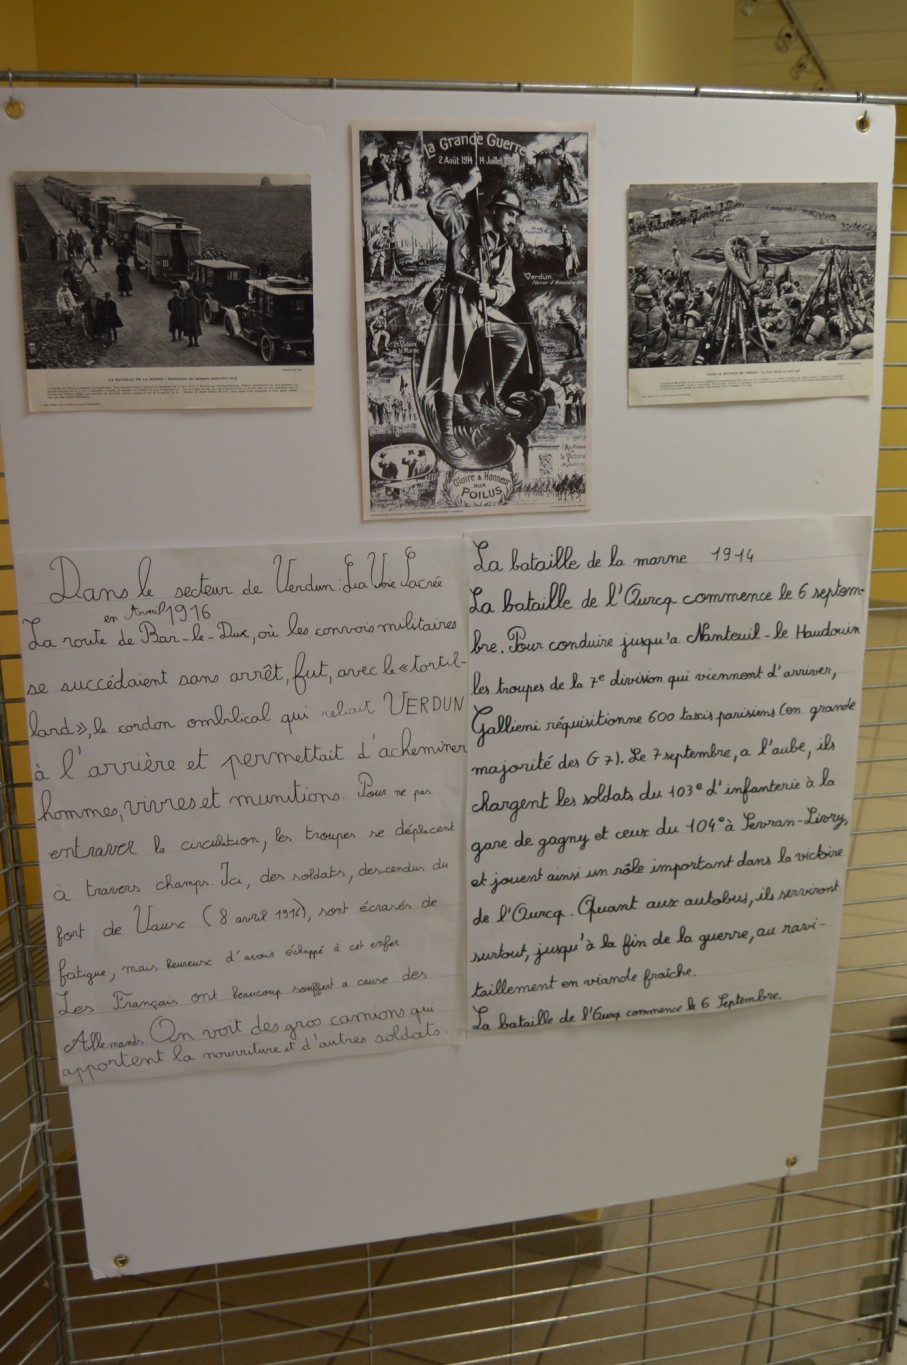 La Grande Guerre
2 Août 1914 14 Juillet
Verdun
Gloire & Honneur
aux
POILUS
LA BATAILLE DE LA MARNE
Dans le secteur de Verdun : La Voie Sacrée
en Avril 1916
La route de Bar-le-Duc, où les convois militaires
se succédaient sans arrêt, fut, avec le « tortil-
lard », le cordon ombilical qui reliait VERDUN
à l'arrière et permettait d'acheminer
hommes, vivres et munitions. Pour ne pas
entraver la circulation, les troupes se déplacent
à travers champs. Ici, des soldats, descendus du
fort de Vaux (8 avril 1916), sont écrasés de
fatigue, mais heureux d'avoir échappé à cet enfer.
Les Français ont beaucoup souffert a cause des
Allemands. On voit des gros camions qui
apportent la nourriture et d'autres soldats.
La bataille de la marne 1914
La bataille de l'Ourcq commence le 6 septem-
bre. Pour conduire jusqu'a Nanteuil-le Haudouin
les troupes de la 7e division qui viennent d'arriver,
Gallieni réquisitionne 600 taxis parisiens (en grande
majorité des G7). Le 7 septembre, a l'aube, ils
chargent les soldats du 103e d'infanterie à la
gare de gagny et ceux du 104e à Sevran-Livry,
et jouent ainsi un rôle important dans la victoire
de l'Ourcq. Quant aux autobus, ils serviront
surtout, jusqu'à la fin de la guerre, au ravi-
taillement en viande fraîche.
La bataille de l'Ourcq commence le 6 Septembre.